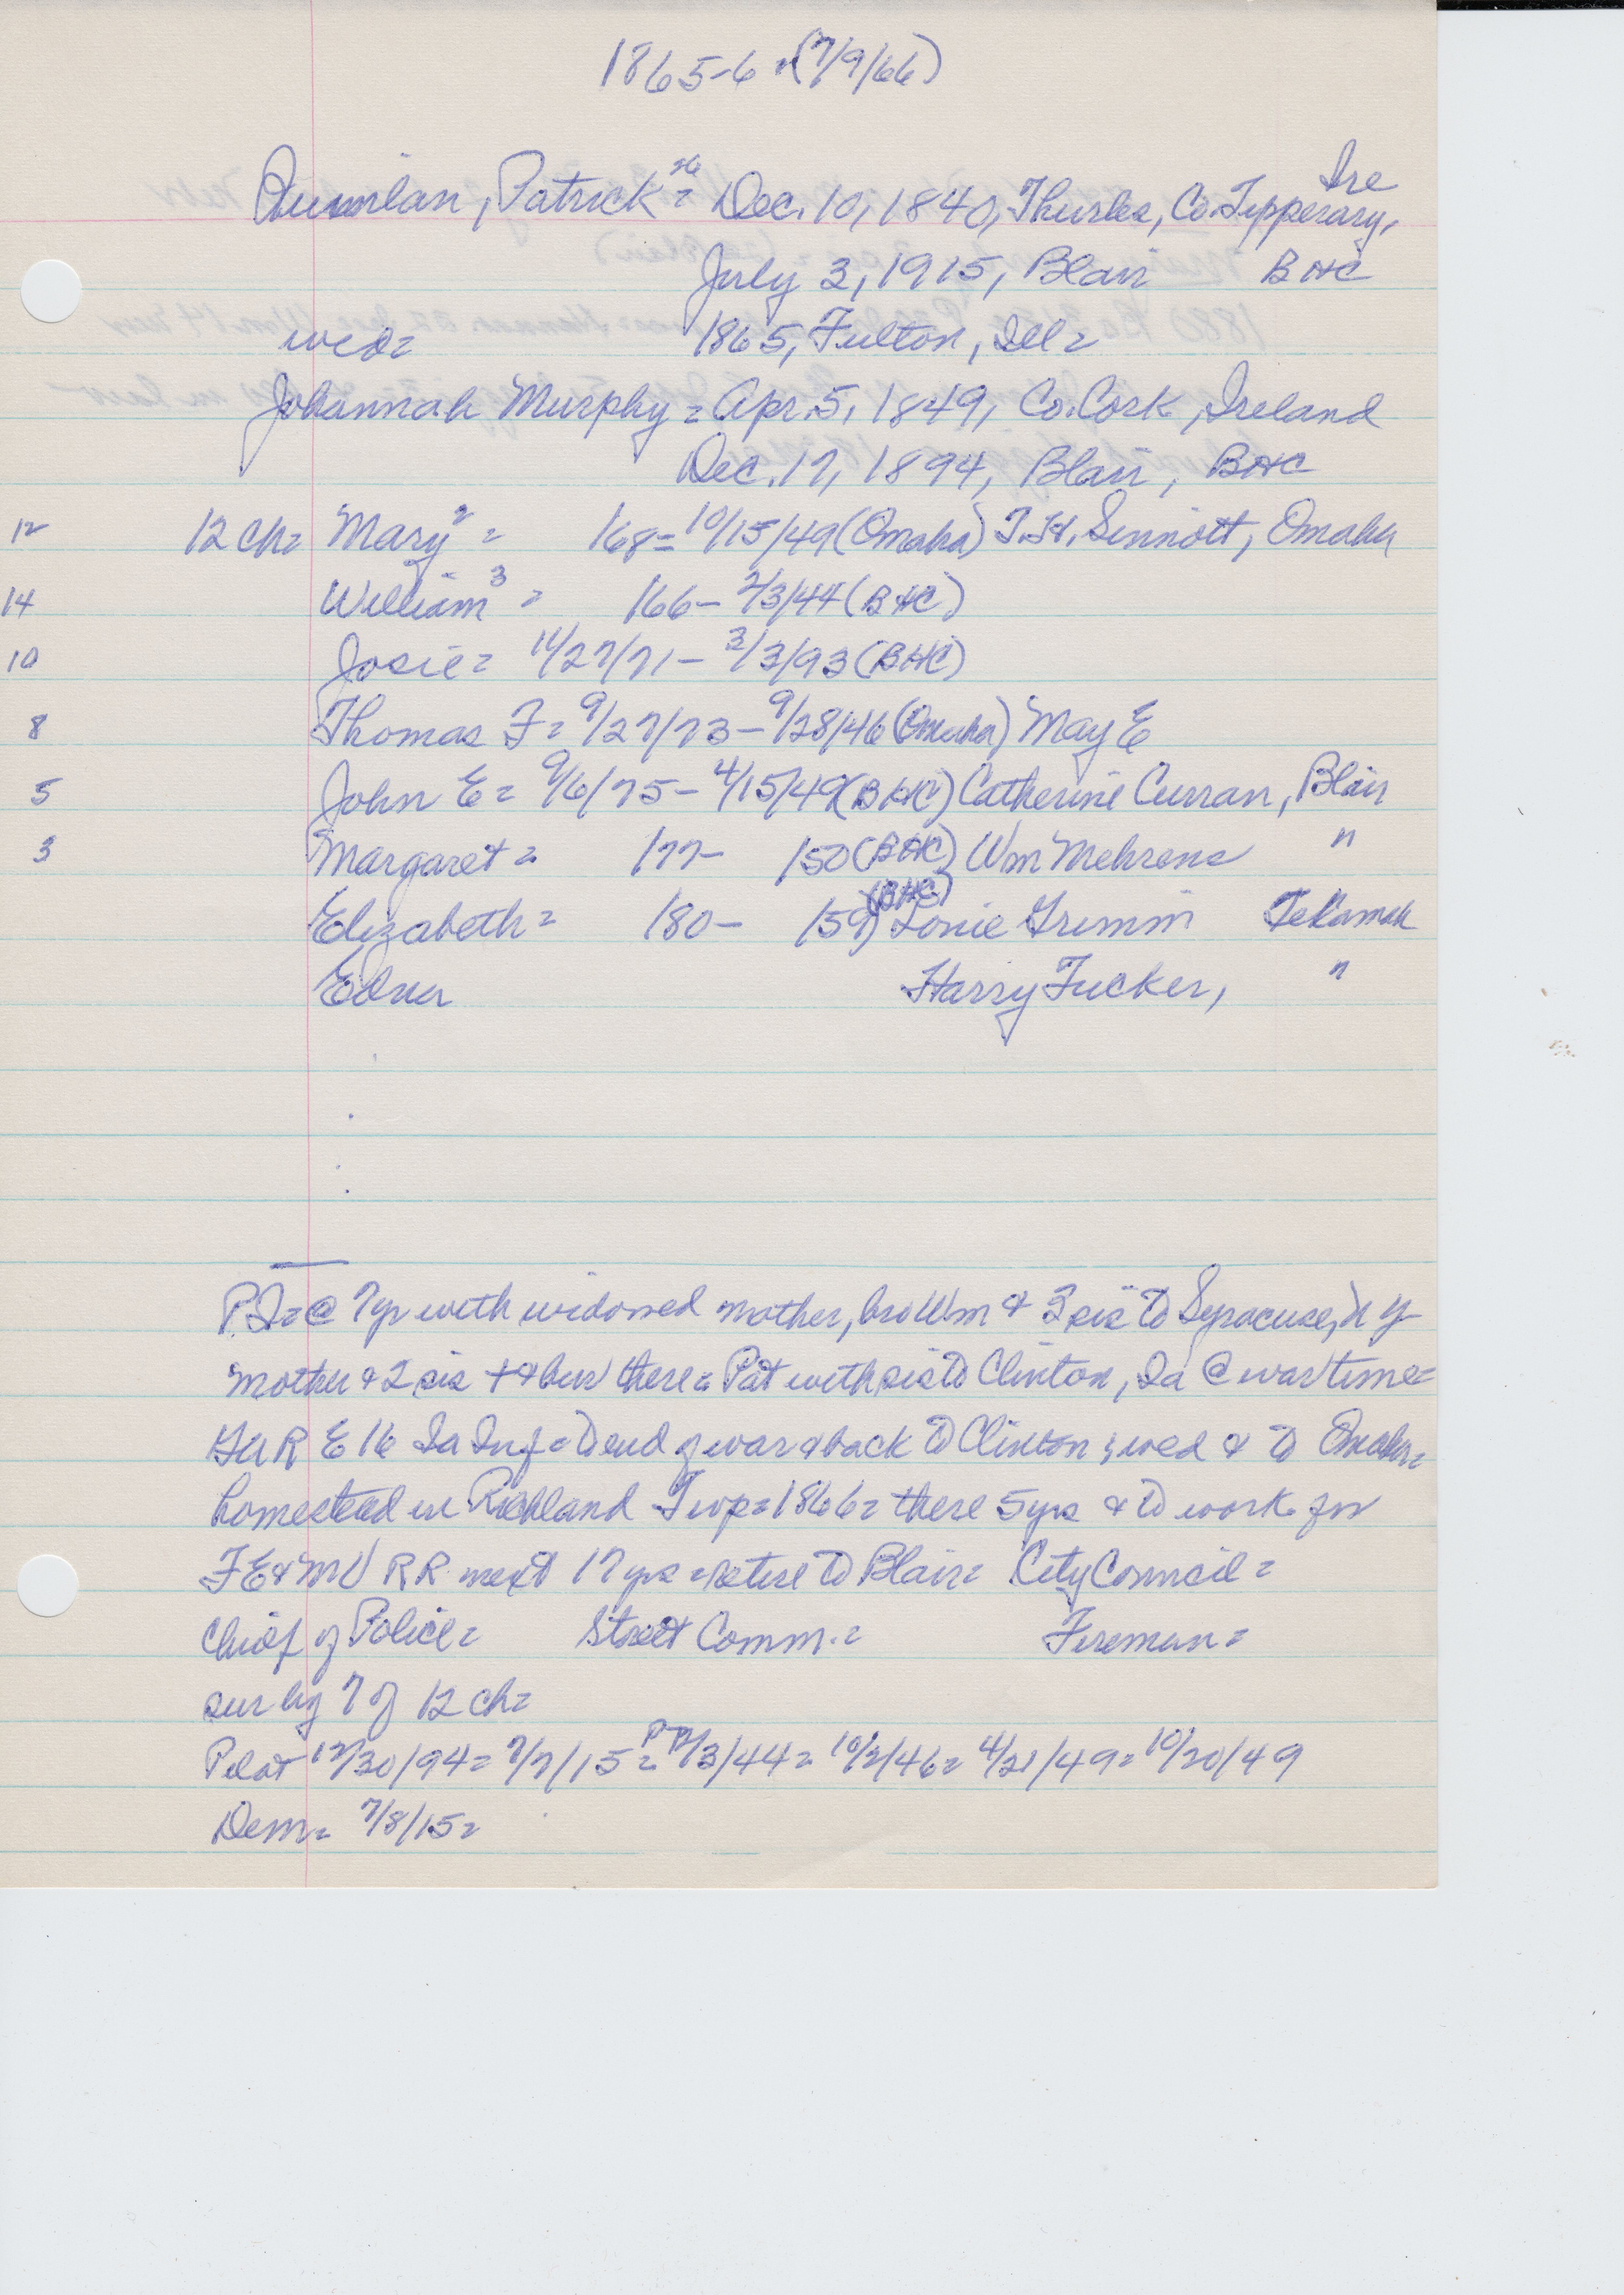 1865-6 (7/9/66)
Quinnlan, Patrick 26 = Dec. 10, 1840, Thurles, Co. Tipperary, Ire
July 3, 1915, Blair BHC
wed= 1865, Fulton, Ill=
Johannah Murphy = Apr. 5, 1849, Co. Cork, Ireland
Dec. 17, 1894, Blair, BHC
12 12 ch= Mary 2 = 168= 10/15/49 (Omaha) T.H. Sinnott, Omaha
14 William 3 = 166- 2/3/44 (BHC)
10 Josie= 11/27/71- 3/3/93 (BHC)
8 Thomas F= 9/27/73- 9/28/46 (Omaha) May E
5 John E= 9/6/75- 4/15/49 (BHC) Catherine Curran, Blair
3 Margaret= 177- 150 (BHC) Wm Mehrens "
Elizabeth= 180- 159 (BHC) Louie Grimm Tekamah
Edna Harry Tucker, "
P.Q= @ 7yr with widowed mother, bro Wm & 3 sis to Syracuse, N Y
mother & 2 sis + & bur there= Pat with sis to Clinton, Ia @ war time=
GAR E 16 Ia Inf= to end of war & back to Clinton; wed & to Omaha=
homestead in Richland Twp= 1866= there 5 yrs & to work for
FE&MV RR next 17 yrs= retire to Blair= City Council=
Chief of Police= Street Comm.= Fireman=
sur by 7 of 12 ch=
Pilot 12/30/94= 7/7/15= 2/3/44= 10/2/46= 4/21/49= 10/20/49
Dem= 7/8/15=